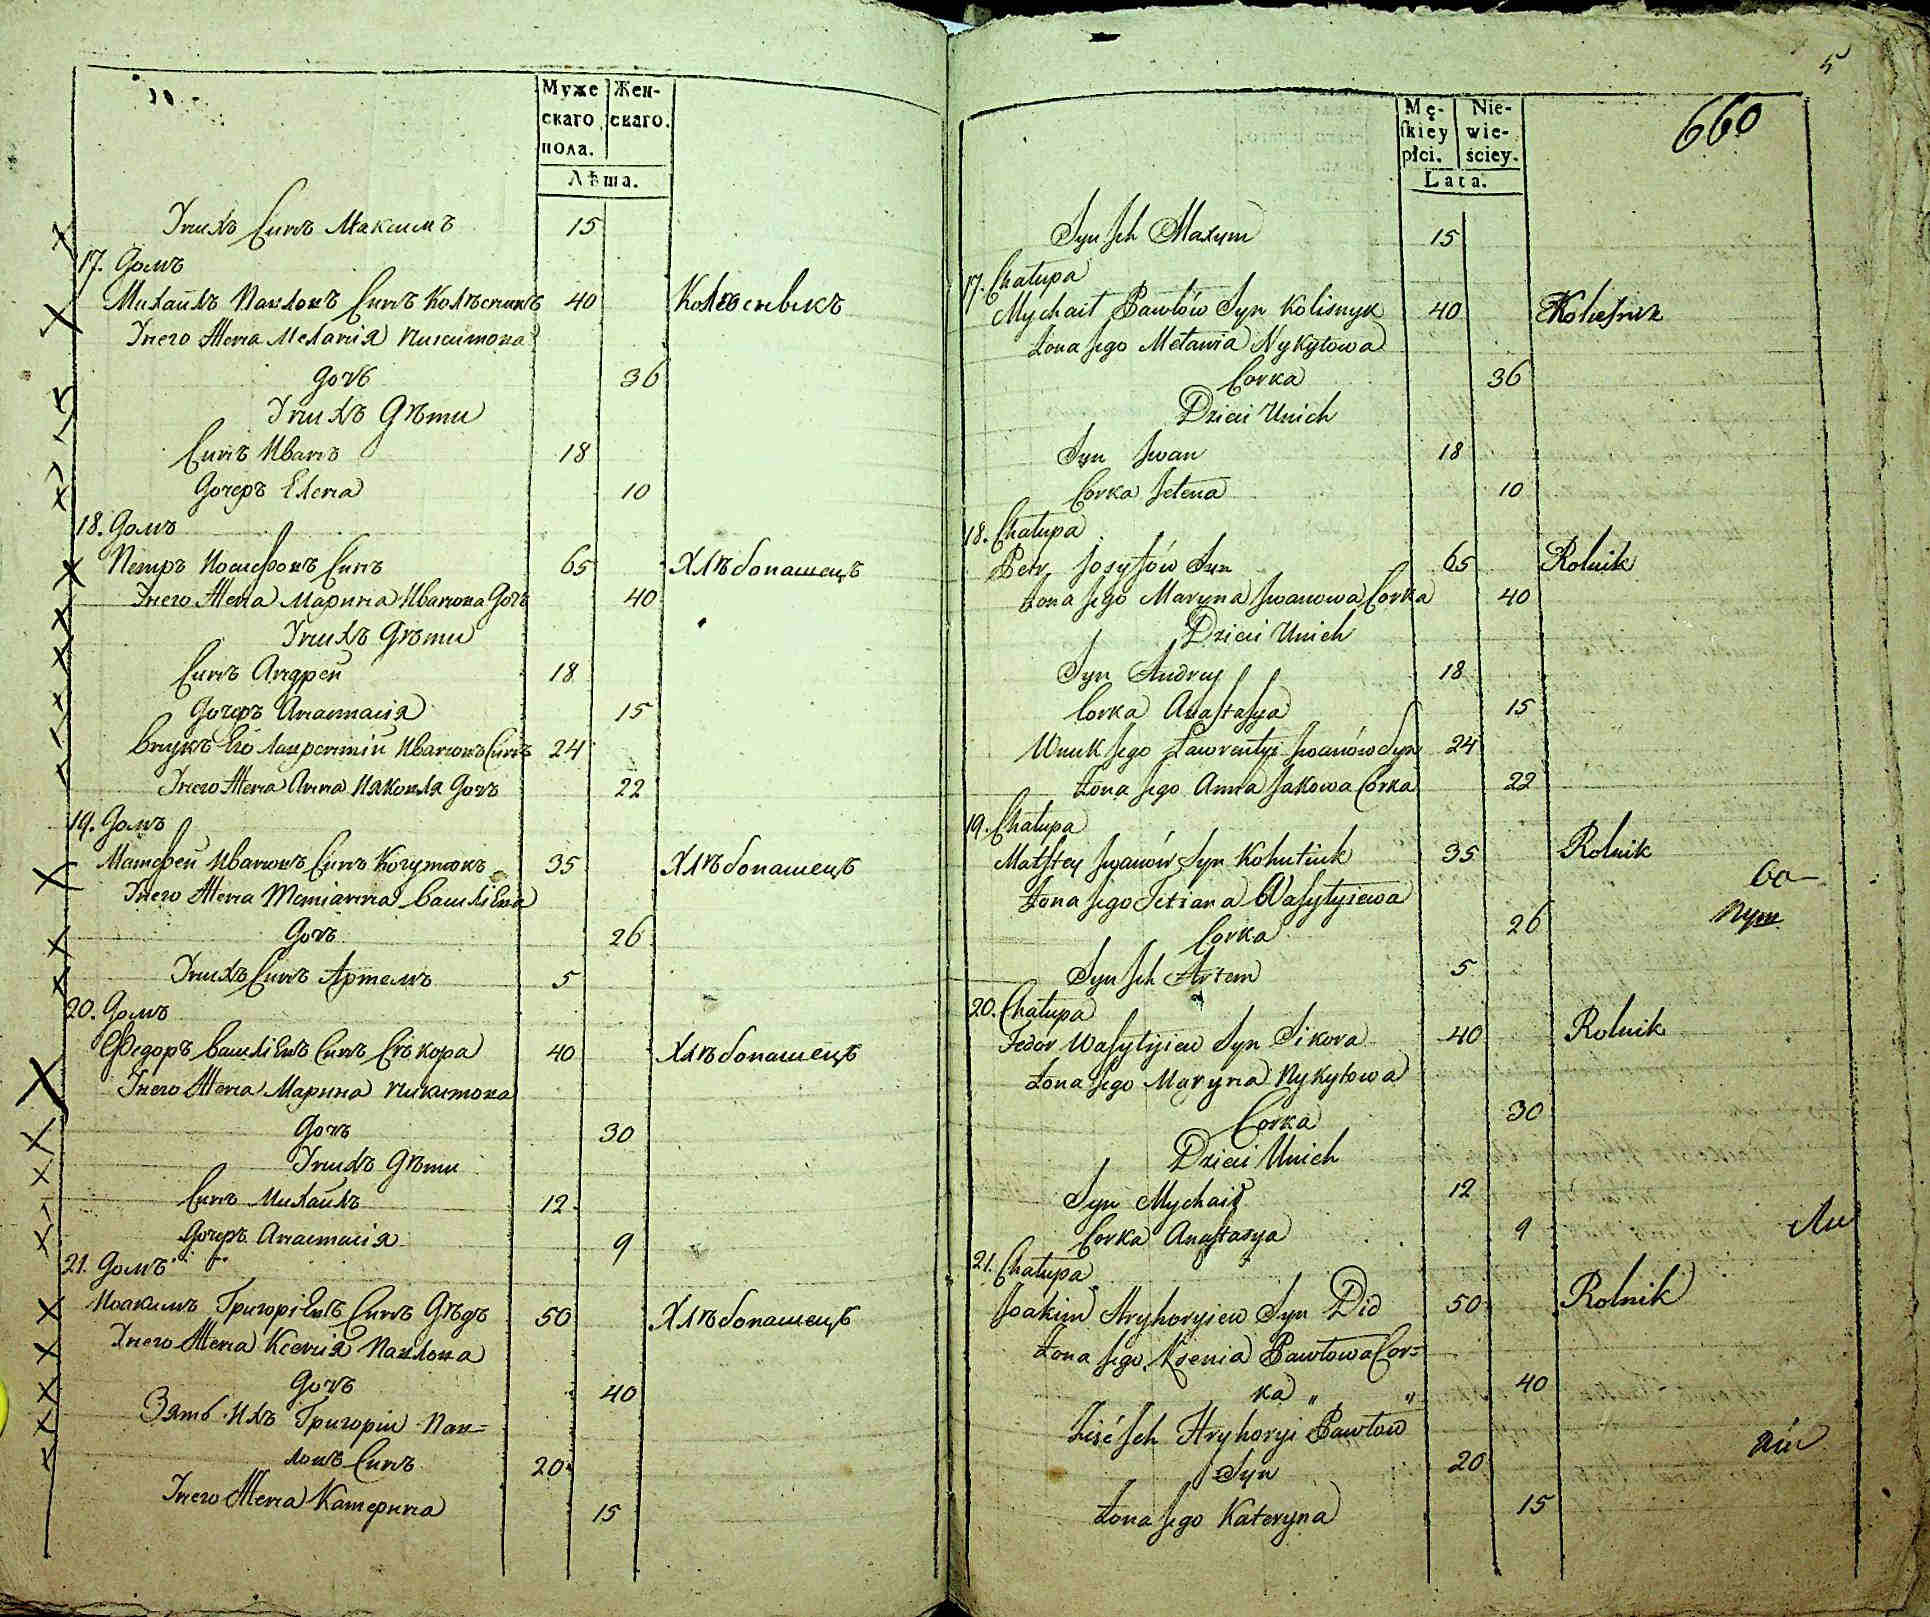 Муже
скаго
пола.
Жен-
скаго.
Лѣта.
У нихъ Синъ Максимъ 15
17. Домъ
Михайлъ Павловъ Синъ Колѣсникъ 40 Колесникъ
У него Жена Меланія Никитова
Дочь 36
У нихъ Дѣти
Синъ Иванъ 18
Дочеръ Елена 10
18. Домъ
Петръ Иосифовъ Синъ 65 Хлѣбопашецъ
У него Жена Марина Иванова Дочь 40
У нихъ Дѣти
Синъ Андрей 18
Дочеръ Анастасія 15
Внукъ Его Лаврентій Ивановъ Синъ 24
У него Жена Анна Ияковля Дочь 22
19. Домъ
Матфей Ивановъ Синъ Когутюкъ 35 Хлѣбопашецъ
У него Жена Тетіанна Василіева
Дочь 26
У нихъ Синъ Артемъ 5
20. Домъ
Федоръ Василіевъ Синъ Сѣкора 40 Хлѣбопашецъ
У него Жена Марина Никитова
Дочь 30
У нихъ Дѣти
Синъ Михайлъ 12
Дочеръ Анастасія 9
21. Домъ
Иоакимъ Григоріевъ Синъ Дѣдъ 50 Хлѣбопашецъ
У него Жена Ксенія Павлова
Дочь 40
Зять Ихъ Григорій Пав=
ловъ Синъ 20
У него Жена Катерина 15
5
660
Mę-
skiey
płci.
Nie-
wie-
ściey.
Lata.
Syn Jch Maxym 15
17. Chałupa
Mychaił Pawłów Syn Kolisnyk 40 Kołesnik
Żona Jego Mełania Nykytowa
Corka 36
Dzieci Unich
Syn Jwan 18
Corka Jełena 10
18. Chałupa
Petr Josyfów Syn 65 Rolnik
Żona Jego Maryna Jwanowa Corka 40
Dzieci Unich
Syn Andrey 18
Corka Anastasya 15
Wnuk Jego Ławrentyi Jwanów Syn 24
Żona Jego Anna Jakowa Corka 22
19. Chałupa
Matftey Jwanów Syn Kohutiuk 35 Rolnik
Żona Jego Tetiana Wasyłyiewa
Corka 26
Syn Jch Artem 5
20. Chałupa
Fedor Wasyłyiew Syn Sikora 40 Rolnik
Żona Jego Maryna Nykytowa
Corka 30
Dzieci Unich
Syn Mychaił 12
Corka Anastasya 9
21. Chałupa
Joakim Hryhoryiew Syn Did 50 Rolnik
Żona Jego Ksenia Pawłowa Cor=
ka „ „ 40
Zięć Jch Hryhoryi Pawłow
Syn 20
Żona Jego Kateryna 15